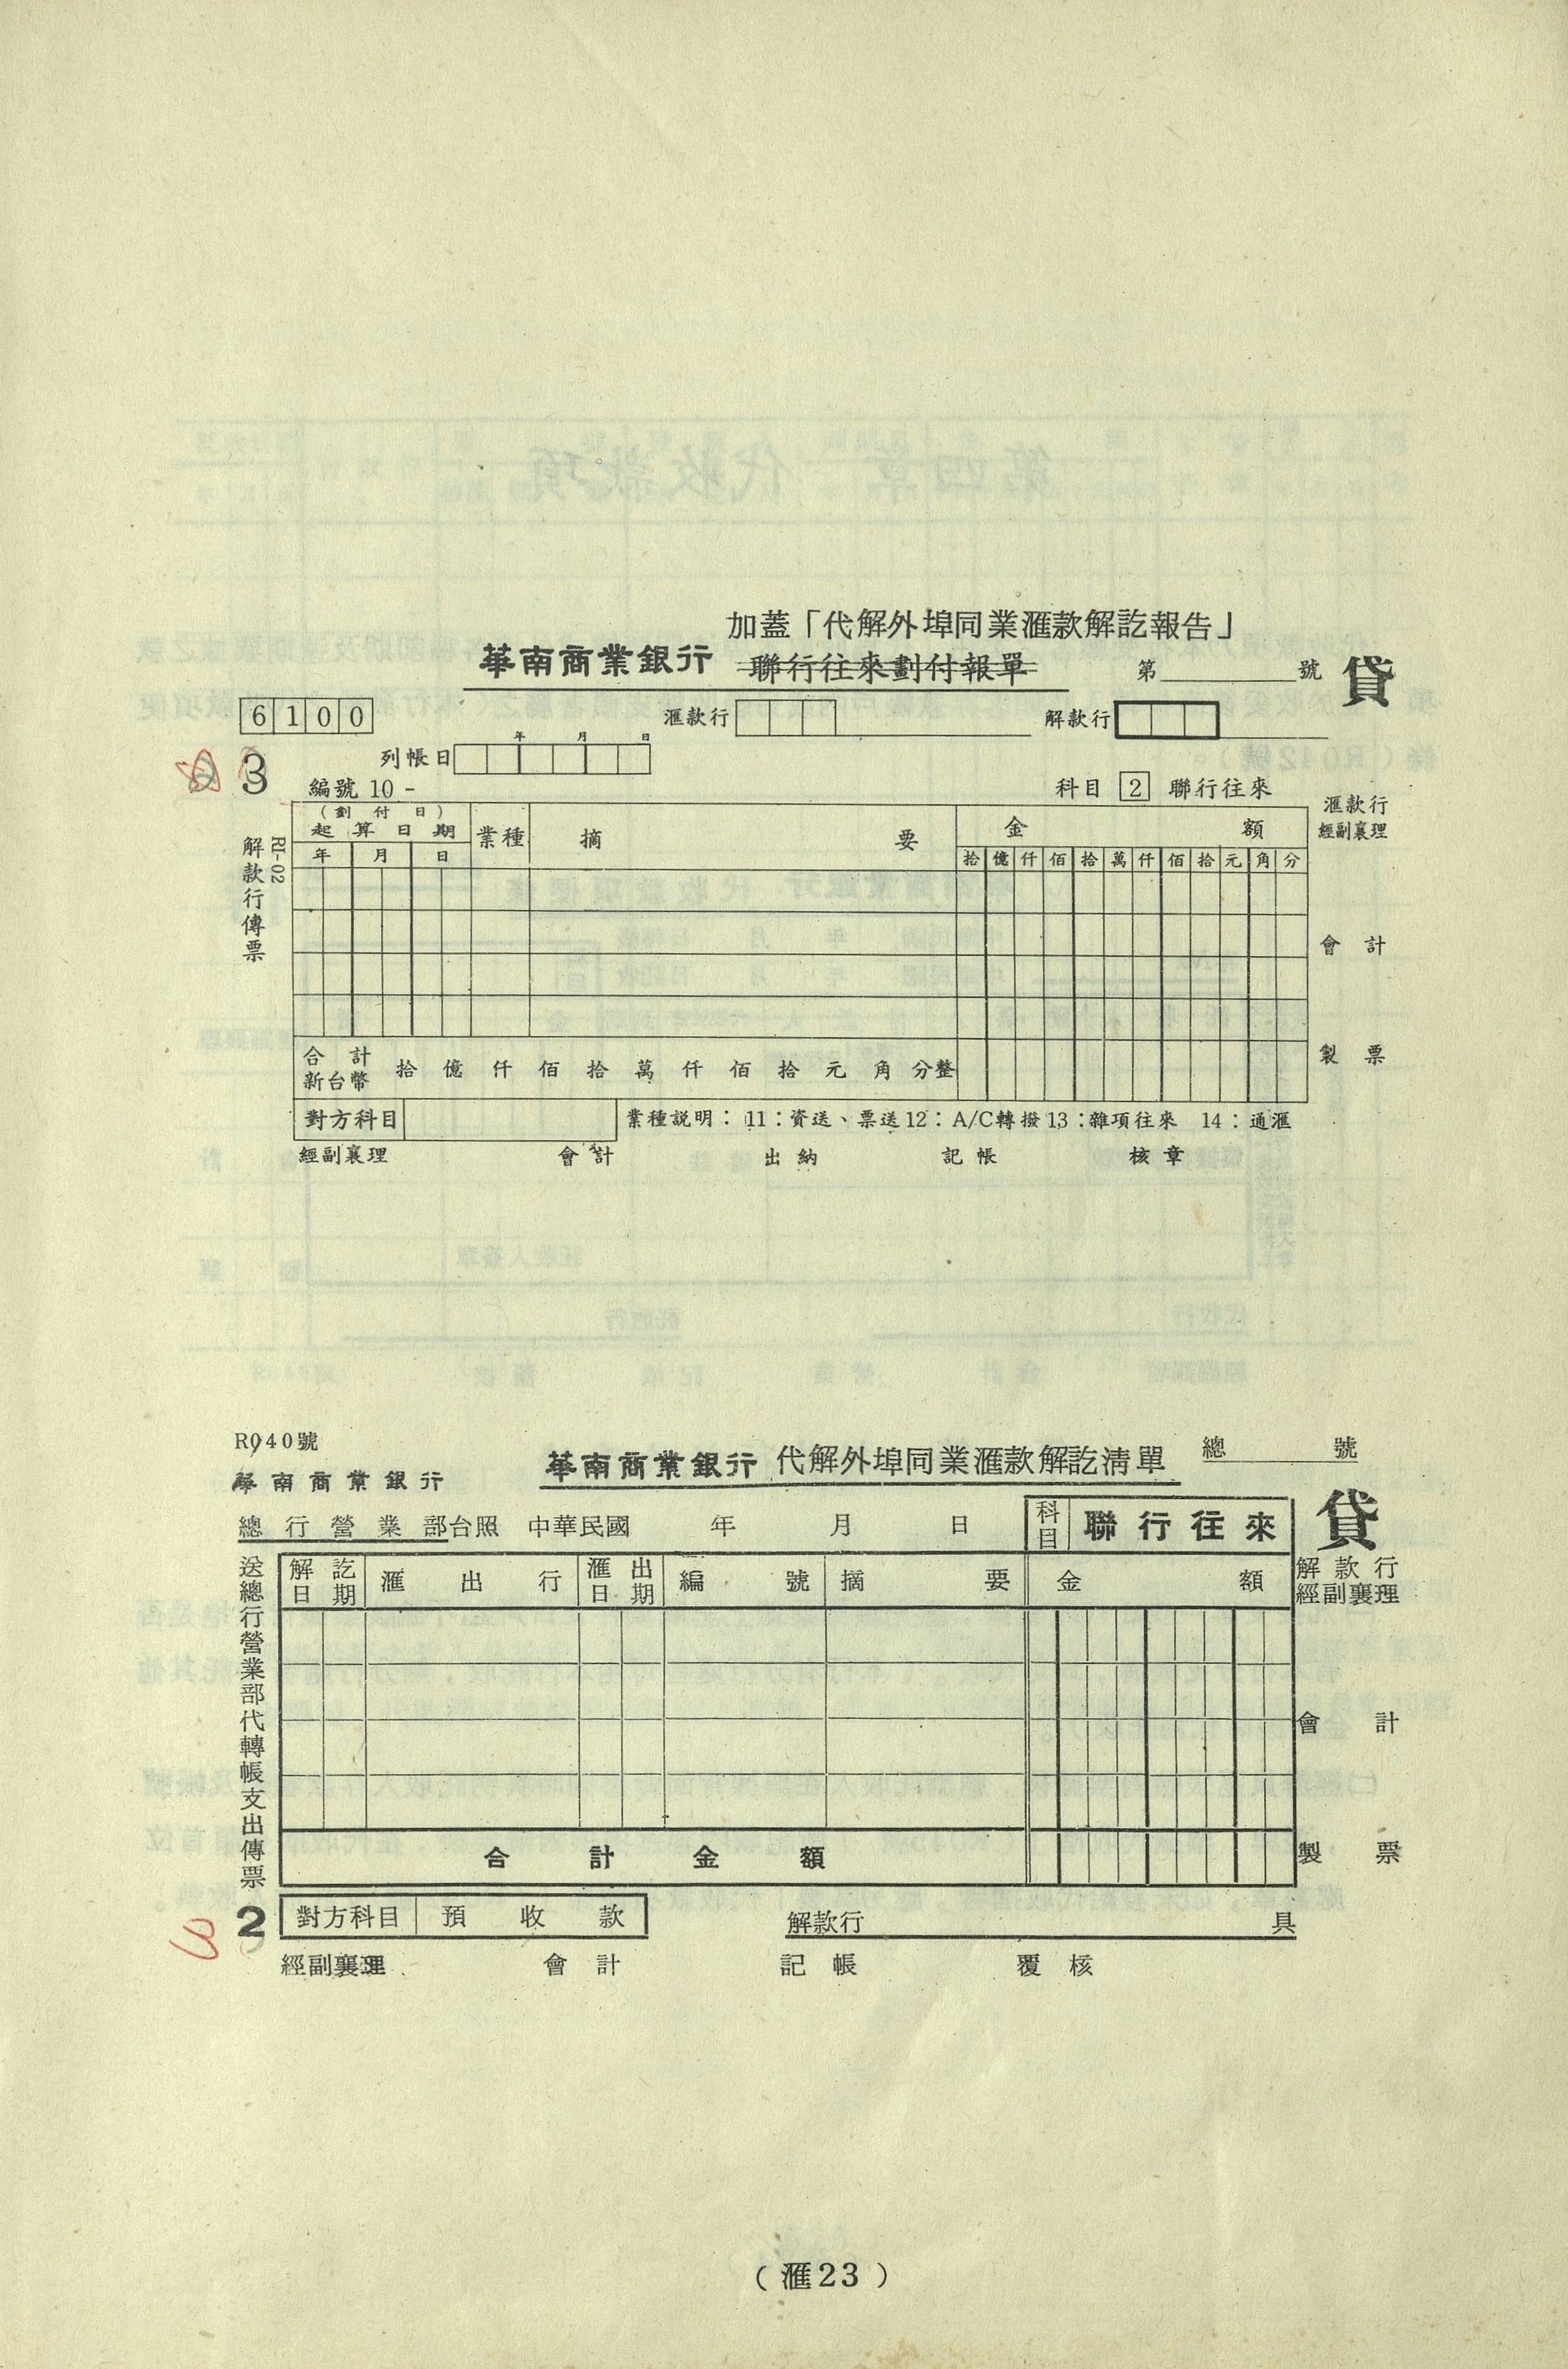 加蓋「代解外埠同業滙款解訖報告」
華南商業銀行 聯行往來劃付報單 第 號 貸
6100 滙款行 解款行
年 月 日
列帳日
3
編號 10- 科目 2 聯行往來
滙款行
經副襄理
會計
製票
RI-02
解款行傳票
(劃付日)
起算日期 業種 摘要 金額
年 月 日 拾 億 仟 佰 拾 萬 仟 佰 拾 元 角 分
合計
新台幣 拾 億 仟 佰 拾 萬 仟 佰 拾 元 角 分整
對方科目 業種説明:11:資送、票送12:A/C轉撥13:雜項往來 14:通滙
經副襄理 會計 出納 記帳 核章
R040號
華南商業銀行 代解外埠同業滙款解訖清單 總 號
華南商業銀行
貸
總行營業部台照 中華民國 年 月 日 科目 聯行往來
解款行
經副襄理
會計
製票
送總行營業部代轉帳支出傳票
解訖日期 滙出行 滙出日期 編號 摘要 金額
合計金額
2 對方科目 預收款 解款行 具
經副襄理 會計 記帳 覆核
(滙23)